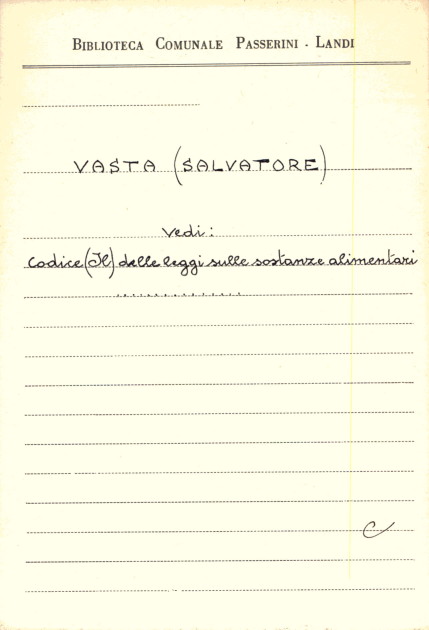 BIBLIOTECA COMUNALE PASSERINI - LANDI
VASTA (SALVATORE)
Vedi:
Codice (Il) delle leggi sulle sostanze alimentari
..............
C